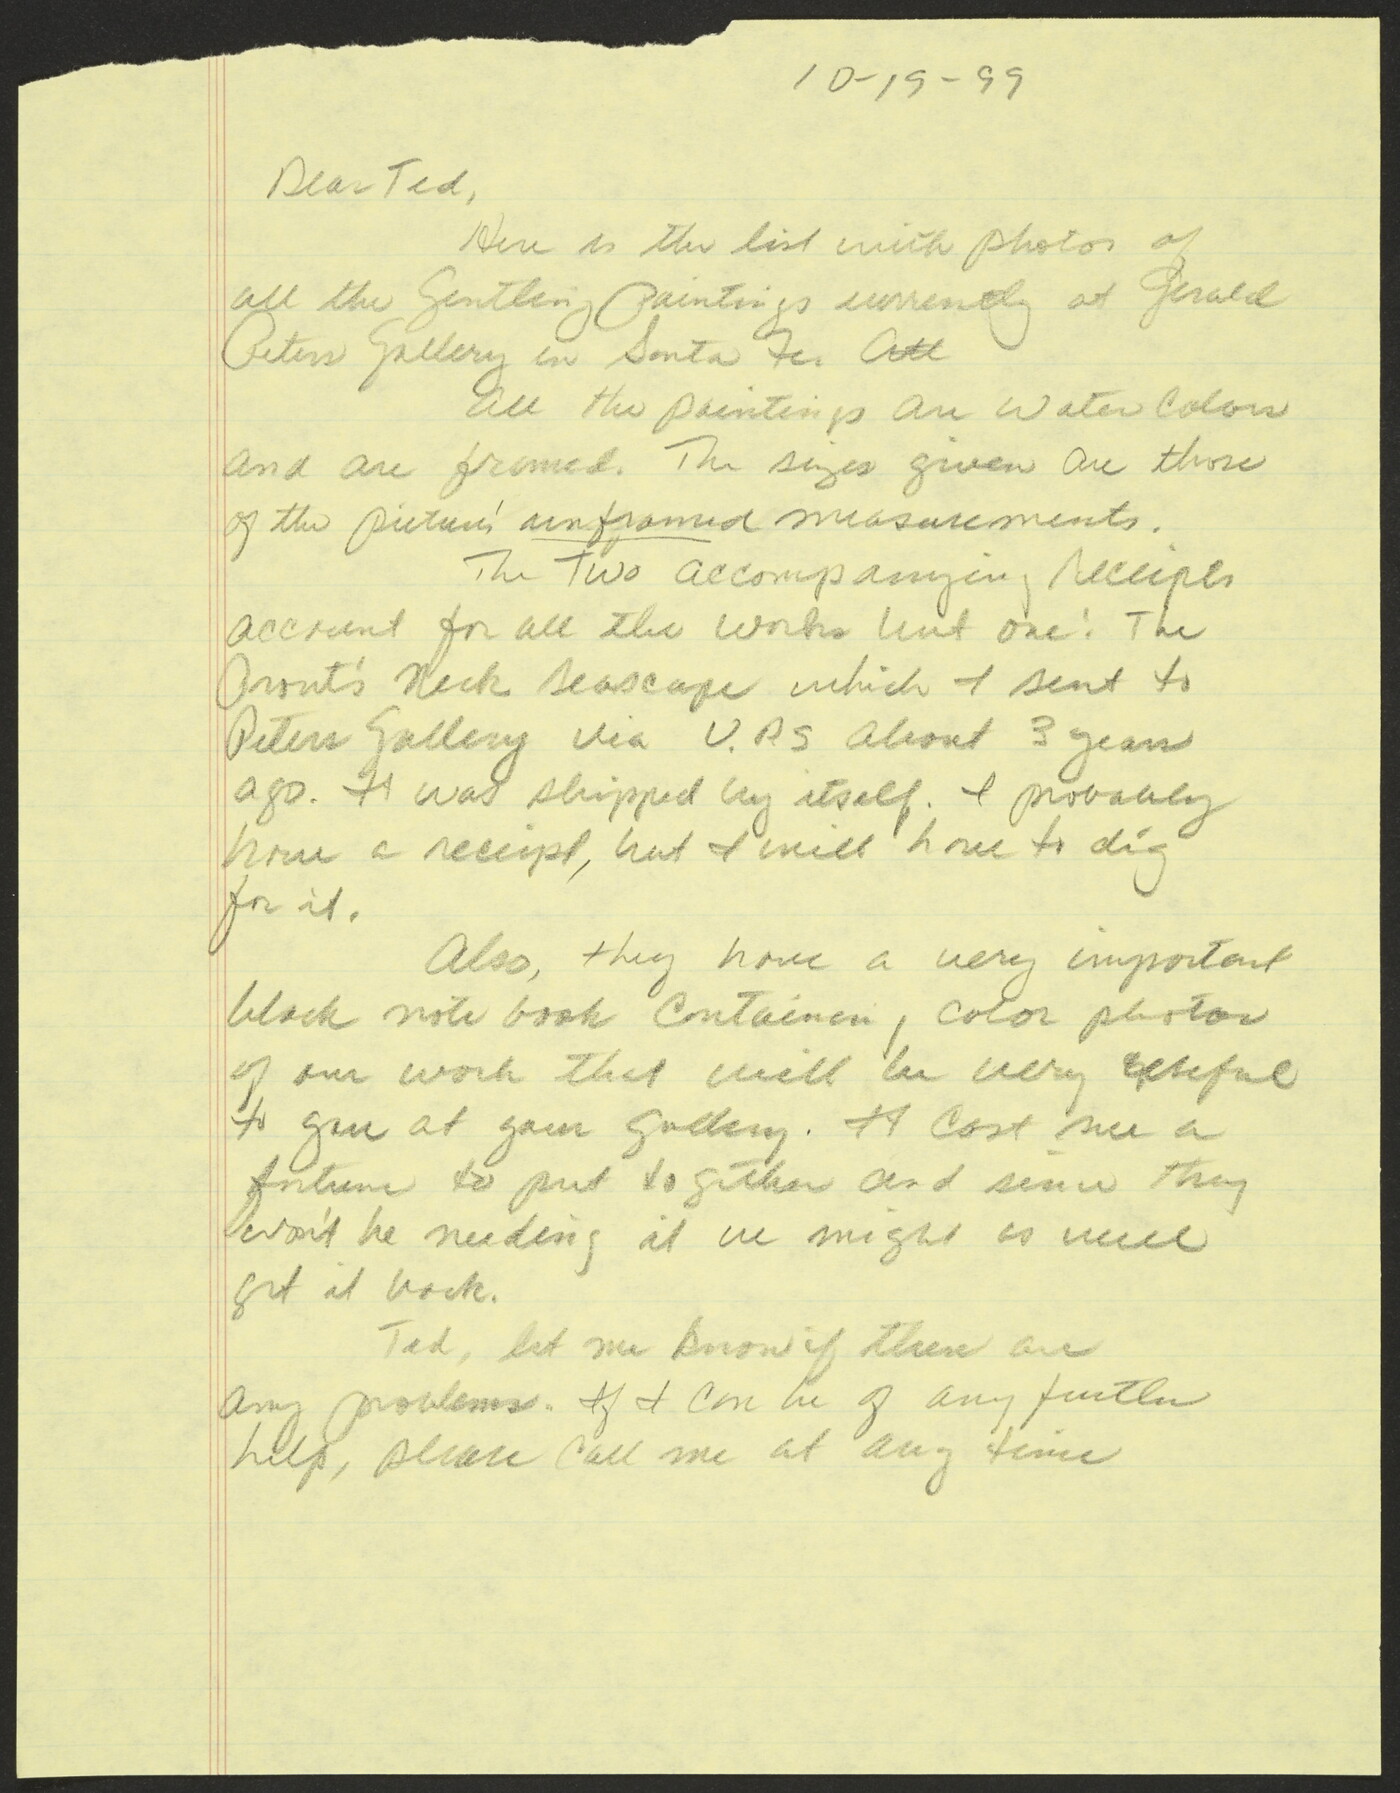 10-19-99
Dear Ted,
Here is the list with photos of
all the Gentling Paintings currently at Gerald
Peters Gallery in Santa Fe. All
All the paintings are water colors
and are framed. The sizes given are those
of the picture's unframed measurements.
The two accompanying receipts
account for all the works but one: The
Prout's Neck seascape which I sent to
Peters Gallery via U.P.S about 3 years
ago. It was shipped by itself. I probably
have a receipt, but I will have to dig
for it.
Also, they have a very important
black note book containing color photos
of our work that will be very useful
to you at your gallery. It cost me a
fortune to put together and since they
won't be needing it we might as well
get it back.
Ted, let me know if there are
any problems. If I can be of any further
help, please call me at any time